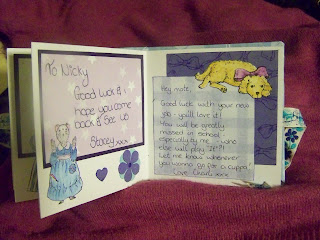 To Nicky
Good luck &
hope you come
back & see us
Stacey xxx
Hey mate,
Good luck with your new
job - you'll love it!
You will be greatly
missed in school -
especially by me - who
else will play
Let me know whenever
you wanna go for a cuppa!
Love Charl xxx